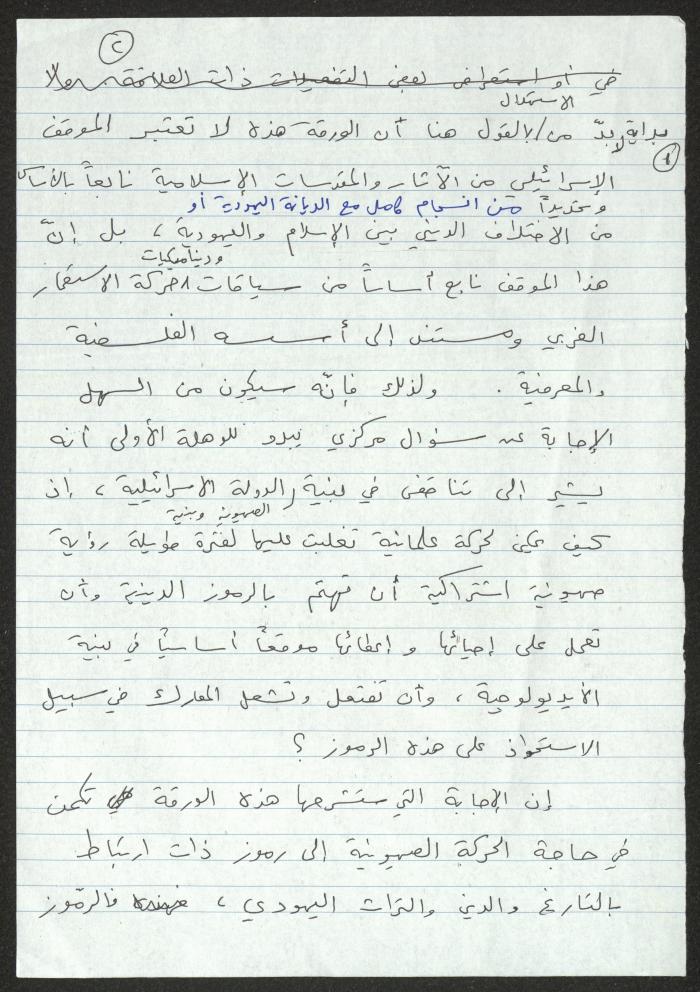 ٢
في أو استعراض لبعض التفصيلات ذات العلاقة
الاستهلال
بداية لا بدّ من / بالقول هنا أن الورقة هذه لا تعتبر الموقف
١
الإسرائيلي من الآثار والمقدسات الإسلامية نابعاً بالأساس
وتحديداً من انسجام كامل مع الديانة اليهودية أو
من الاختلاف الديني بين الإسلام واليهودية ، بل إنّ
وديناميكيات
هذا الموقف نابع أساساً من سياقات حركة الاستعمار
الغربي ومستند إلى أسسه الفلسفية
والمعرفية . ولذلك فإنّه سيكون من السهل
الإجابة عن سؤال مركزي يبدو للوهلة الأولى أنه
يشير إلى تناقض في بنية الدولة الاسرائيلية ، إذ
الصهيونية وبنية
كيف يمكن لحركة علمانية تغلبت عليها لفترة طويلة رؤية
صهيونية اشتراكية أن تهتم بالرموز الدينية وأن
تعمل على إحيائها و إعطائها موقعاً أساسياً في بنية
الأيديولوجية ، وأن تفتعل وتشعل المعارك في سبيل
الاستحواذ على هذه الرموز ؟
إن الإجابة التي ستشرحها هذه الورقة تكمن
في حاجة الحركة الصهيونية إلى رموز ذات ارتباط
بالتاريخ والدين والتراث اليهودي ، فالرموز